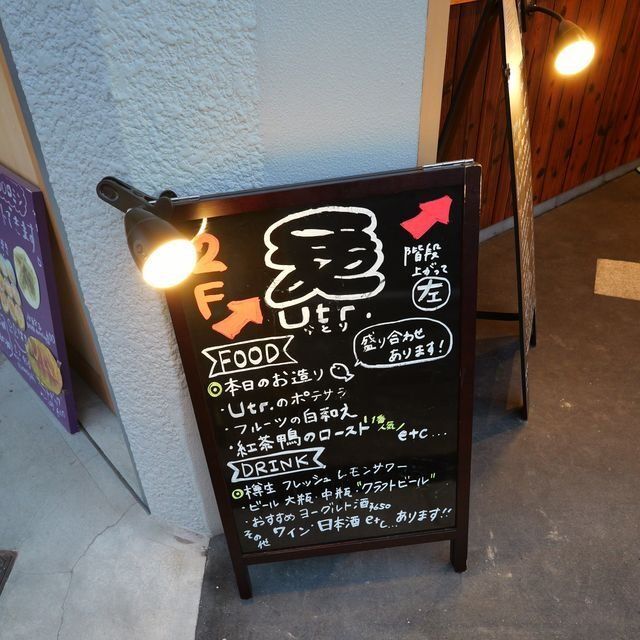 2F
Utr.
うとり
階段
上がって
左
FOOD
盛り合わせ
あります!
◎本日のお造り
・Utr.のポテサラ
・フルーツの白和え
・紅茶鴨のロースト 1番人気 etc...
DRINK
◎樽生 フレッシュレモンサワー
・ビール 大瓶・中瓶 "クラフトビール"
・おすすめ ヨーグルト酒 ¥650
その他 ワイン・日本酒 etc... あります!!